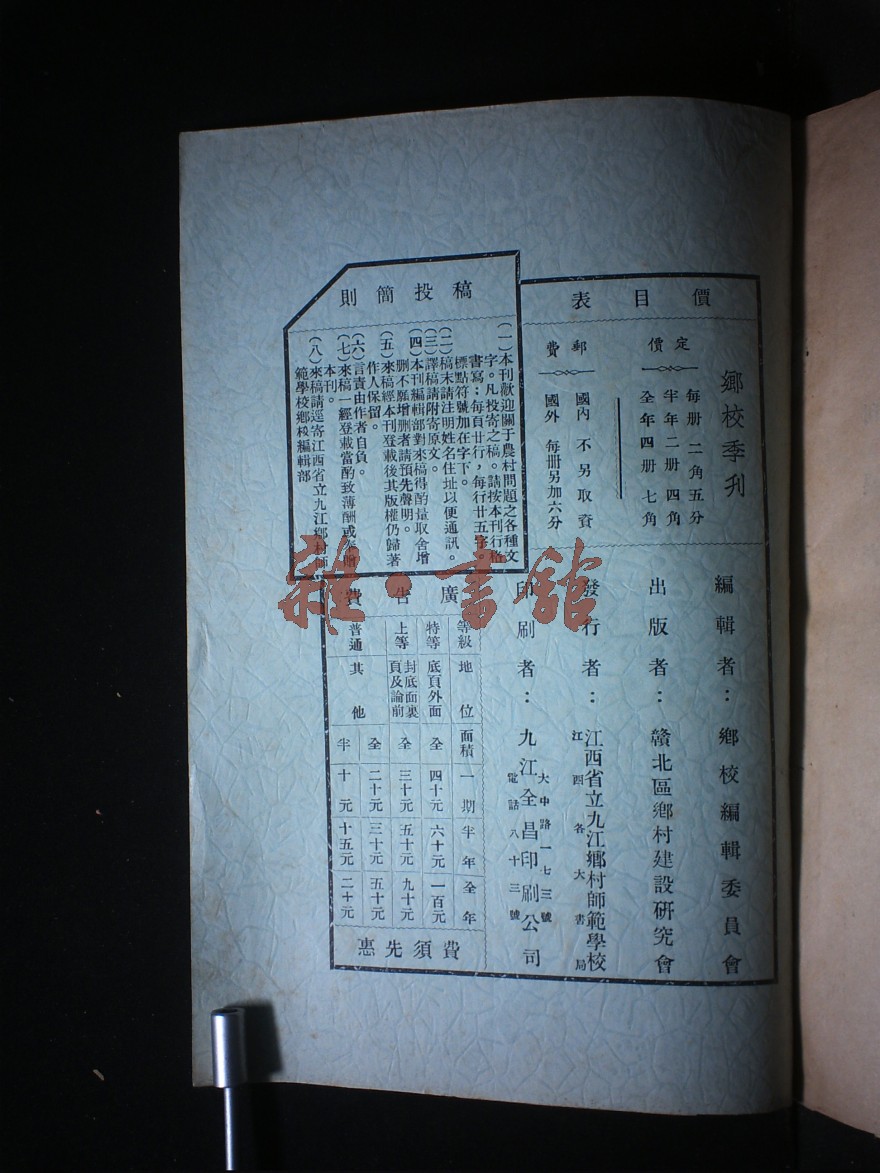 價目表
鄉校季刋
定價
每册 二角五分
半年二册 四角
全年四册 七角
郵費
國內 不另取資
國外 每册另加六分
編輯者：鄉校編輯委員會
出版者：贛北區鄉村建設研究會
發行者：江西省立九江鄉村師範學校
江西各大書局
印刷者：九江全昌印刷公司
大中路一七三號
電話八十三號
投稿簡則
(一)本刊歡迎關于農村問題之各種文
字。凡投寄之稿。請按本刊行格
書寫：每頁廿行，每行廿五字。
標點符號加在字下。
(二)稿末請注明姓名住址以便通訊。
(三)譯稿請附寄原文。
(四)本刊編輯部對來稿得酌量取舍增
删不願增删者請預先聲明。
(五)來稿經本刊登載後其版權仍歸著
作人保留。
(六)言責由作者自負。
(七)來稿一經登載當酌致薄酬或奉贈
本刊。
(八)來稿請逕寄江西省立九江鄉村師
範學校鄉校編輯部
廣告費
等級 地位 面積 一期 半年 全年
特等 底頁外面 全 四十元 六十元 一百元
上等 封底面裏頁及論前 全 三十元 五十元 九十元
普通 其他 全 二十元 三十元 五十元
半 十元 十五元 二十元
費須先惠
雜·書館